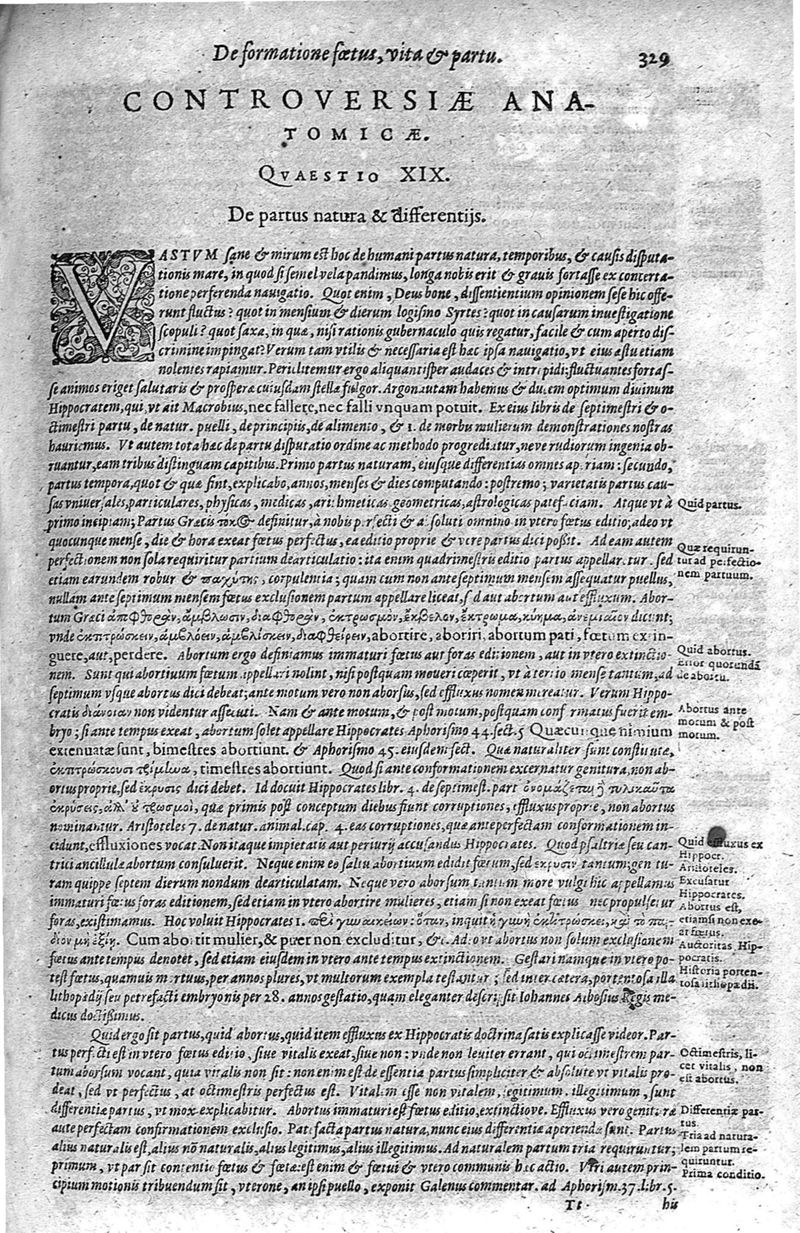 De formatione fœtus, vita & partu. 329
CONTROVERSIÆ ANA-
TOMICÆ.
QVAESTIO XIX.
De partus natura & differentijs.
VASTVM sane & mirum est hoc de humani partus natura, temporibus, & causis disputa-
tionis mare, in quod si semel vela pandimus, longa nobis erit & grauis fortasse ex concerta-
tione perferenda nauigatio. Quot enim, Deus bone, dissentientium opinionem sese hic offe-
runt fluctus? quot in mensium & dierum logismo Syrtes? quot in causarum inuestigatione
scopuli? quot saxa, in quæ, nisi rationis gubernaculo quis regatur, facile & cum aperto dis-
crimine impingat? Verum tam vtilis & necessaria est hæc ipsa nauigatio, vt eius æstu etiam
nolentes rapiamur. Periclitemur ergo aliquantisper audaces & intrepidi: fluctuantes fortas-
se animos eriget salutaris & prospera cuiusdam stellæ fulgor. Argonautam habemus & ducem optimum diuinum
Hippocratem, qui, vt ait Macrobius, nec fallere, nec falli vnquam potuit. Ex eius libris de septimestri & o-
ctimestri partu, de natur. puelli, de principiis, de alimento, & 1. de morbis mulierum demonstrationes nostras
hauriemus. Vt autem tota hæc de partu disputatio ordine ac methodo progrediatur, neve rudiorum ingenia ob-
ruantur, eam tribus distinguam capitibus. Primo partus naturam, eiusque differentias omnes aperiam: secundo,
partus tempora, quot & quæ sint, explicabo, annos, menses & dies computando: postremo; varietatis partus cau-
sas vniuersales, particulares, physicas, medicas, arithmeticas geometricas, astrologicas patefaciam. Atque vt à
primo incipiam; Partus Græcis τοκος definitur, à nobis perfecti & absoluti omnino in vtero fœtus editio; adeo vt
quocunque mense, die & hora exeat fœtus perfectus, ea editio proprie & vere partus dici possit. Ad eam autem
perfectionem non sola requiritur partium dearticulatio: ita enim quadrimestris editio partus appellaretur. sed
etiam earundem robur & παχύτης, corpulentia; quam cum non ante septimum mensem assequatur puellus,
nullam ante septimum mensem fœtus exclusionem partum appellare liceat, sed aut abortum aut effluxum. Abor-
tum Græci ἀποφθορὰν, ἄμβλωσιν, διαφθορὰν, ἐκτρωσμὸν, ἔκβολον, ἔκτρωμα, κύημα, ἀνεμιαῖον dicunt;
vnde ἐκτιτρώσκειν, ἀμβλόειν, ἀμβλίσκειν, διαφθείρειν, abortire, aboriri, abortum pati, fœtum extin-
guere, aut, perdere. Abortum ergo definiamus immaturi fœtus aut foras editionem, aut in vtero extinctio-
nem. Sunt qui abortiuum fœtum appellari nolint, nisi postquam moueri cœperit, vt à tertio mense tantum, ad
septimum vsque abortus dici debeat; ante motum vero non aborsus, sed effluxus nomen mereatur. Verum Hippo-
cratis διάνοιαν non videntur assecuti. Nam & ante motum, & post motum, postquam conformatus fuerit em-
bryo; si ante tempus exeat, abortum solet appellare Hippocrates Aphorismo 44. sect. 5 Quæcunque nimium
extenuatæ sunt, bimestres abortiunt. & Aphorismo 45. eiusdem sect. Quæ naturaliter sunt constitutæ,
ἐκτιτρώσκουσι τρίμηνα, trimestres abortiunt. Quod si ante conformationem excernatur genitura, non ab-
ortus proprie, sed ἔκρυσις dici debet. Id docuit Hippocrates libr. 4. de septimest. part ὀνομάζεται ἢ τηλικαῦτα
ἐκρύσεις, ἀλλ' οὐ τρωσμοὶ, quæ primis post conceptum diebus fiunt corruptiones, effluxus proprie, non abortus
nominantur. Aristoteles 7. de natur. animal. cap. 4. eas corruptiones, quæ ante perfectam conformationem in-
cidunt, effluxiones vocat. Non itaque impietatis aut periurij accusandus Hippocrates. Quod psaltriæ seu can-
trici ancillulæ abortum consuluerit. Neque enim eo saltu abortiuum edidit fœtum, sed ἔκρυσιν tantum: genitu-
ram quippe septem dierum nondum dearticulatam. Neque vero aborsum tantum more vulgi hic appellamus
immaturi fœtus foras editionem, sed etiam in vtero abortire mulieres, etiam si non exeat fœtus nec propulsetur
foras, existimamus. Hoc voluit Hippocrates 1. περὶ γυναικείων: ὅταν, inquit ἡ γυνὴ ἐκτιτρώσκει, καὶ τὸ παι-
δίον μὴ ἐξίῃ. Cum abortit mulier, & puer non excluditur, &c. Adeo vt abortus non solum exclusionem
fœtus ante tempus denotet, sed etiam eiusdem in vtero ante tempus extinctionem. Gestari namque in vtero po-
test fœtus, quamuis mortuus, per annos plures, vt multorum exempla testantur; sed inter cætera, portentosa illa
lithopædij seu petrefacti embryonis per 28. annos gestatio, quam eleganter descripsit Iohannes Albosius Regis me-
dicus doctissimus.
Quid ergo sit partus, quid abortus, quid item effluxus ex Hippocratis doctrina satis explicasse videor. Par-
tus perfecti est in vtero fœtus editio, siue vitalis exeat, siue non: vnde non leuiter errant, qui octimestrem par-
tum aborsum vocant, quia vitalis non sit: non enim est de essentia partus simpliciter & absolute vt vitalis pro-
deat, sed vt perfectus, at octimestris perfectus est. Vitalem esse non vitalem, legitimum, illegitimum, sunt
differentiæ partus, vt mox explicabitur. Abortus immaturi est fœtus editio, extinctiove. Effluxus vero genituræ
ante perfectam confirmationem exclusio. Patefacta partus natura, nunc eius differentiæ aperiendæ sunt. Partus
alius naturalis est, alius nō naturalis, alius legitimus, alius illegitimus. Ad naturalem partum tria requiruntur;
primum, vt par sit contentio fœtus & fœtæ: est enim & fœtui & vtero communis hæc actio. Vtri autem prin-
cipium motionis tribuendum sit, vterone, an ipsi puello, exponit Galenus commentar. ad Aphorism. 37. libr. 5.
Tt his
Quid partus.
Quæ requirun-
tur ad perfectio-
nem partuum.
Quid abortus.
Error quorundā
de abortu.
Abortus ante
motum & post
motum.
Quid effluxus ex
Hippocr.
Aristoteles.
Excusatur
Hippocrates.
Abortus est,
etiamsi non exe-
at fœtus.
Auctoritas Hip-
pocratis.
Historia porten-
tosa lithopædii.
Octimestris, li-
cet vitalis, non
est abortus.
Differentiæ par-
tus.
Tria ad natura-
lem partum re-
quiruntur.
Prima conditio.